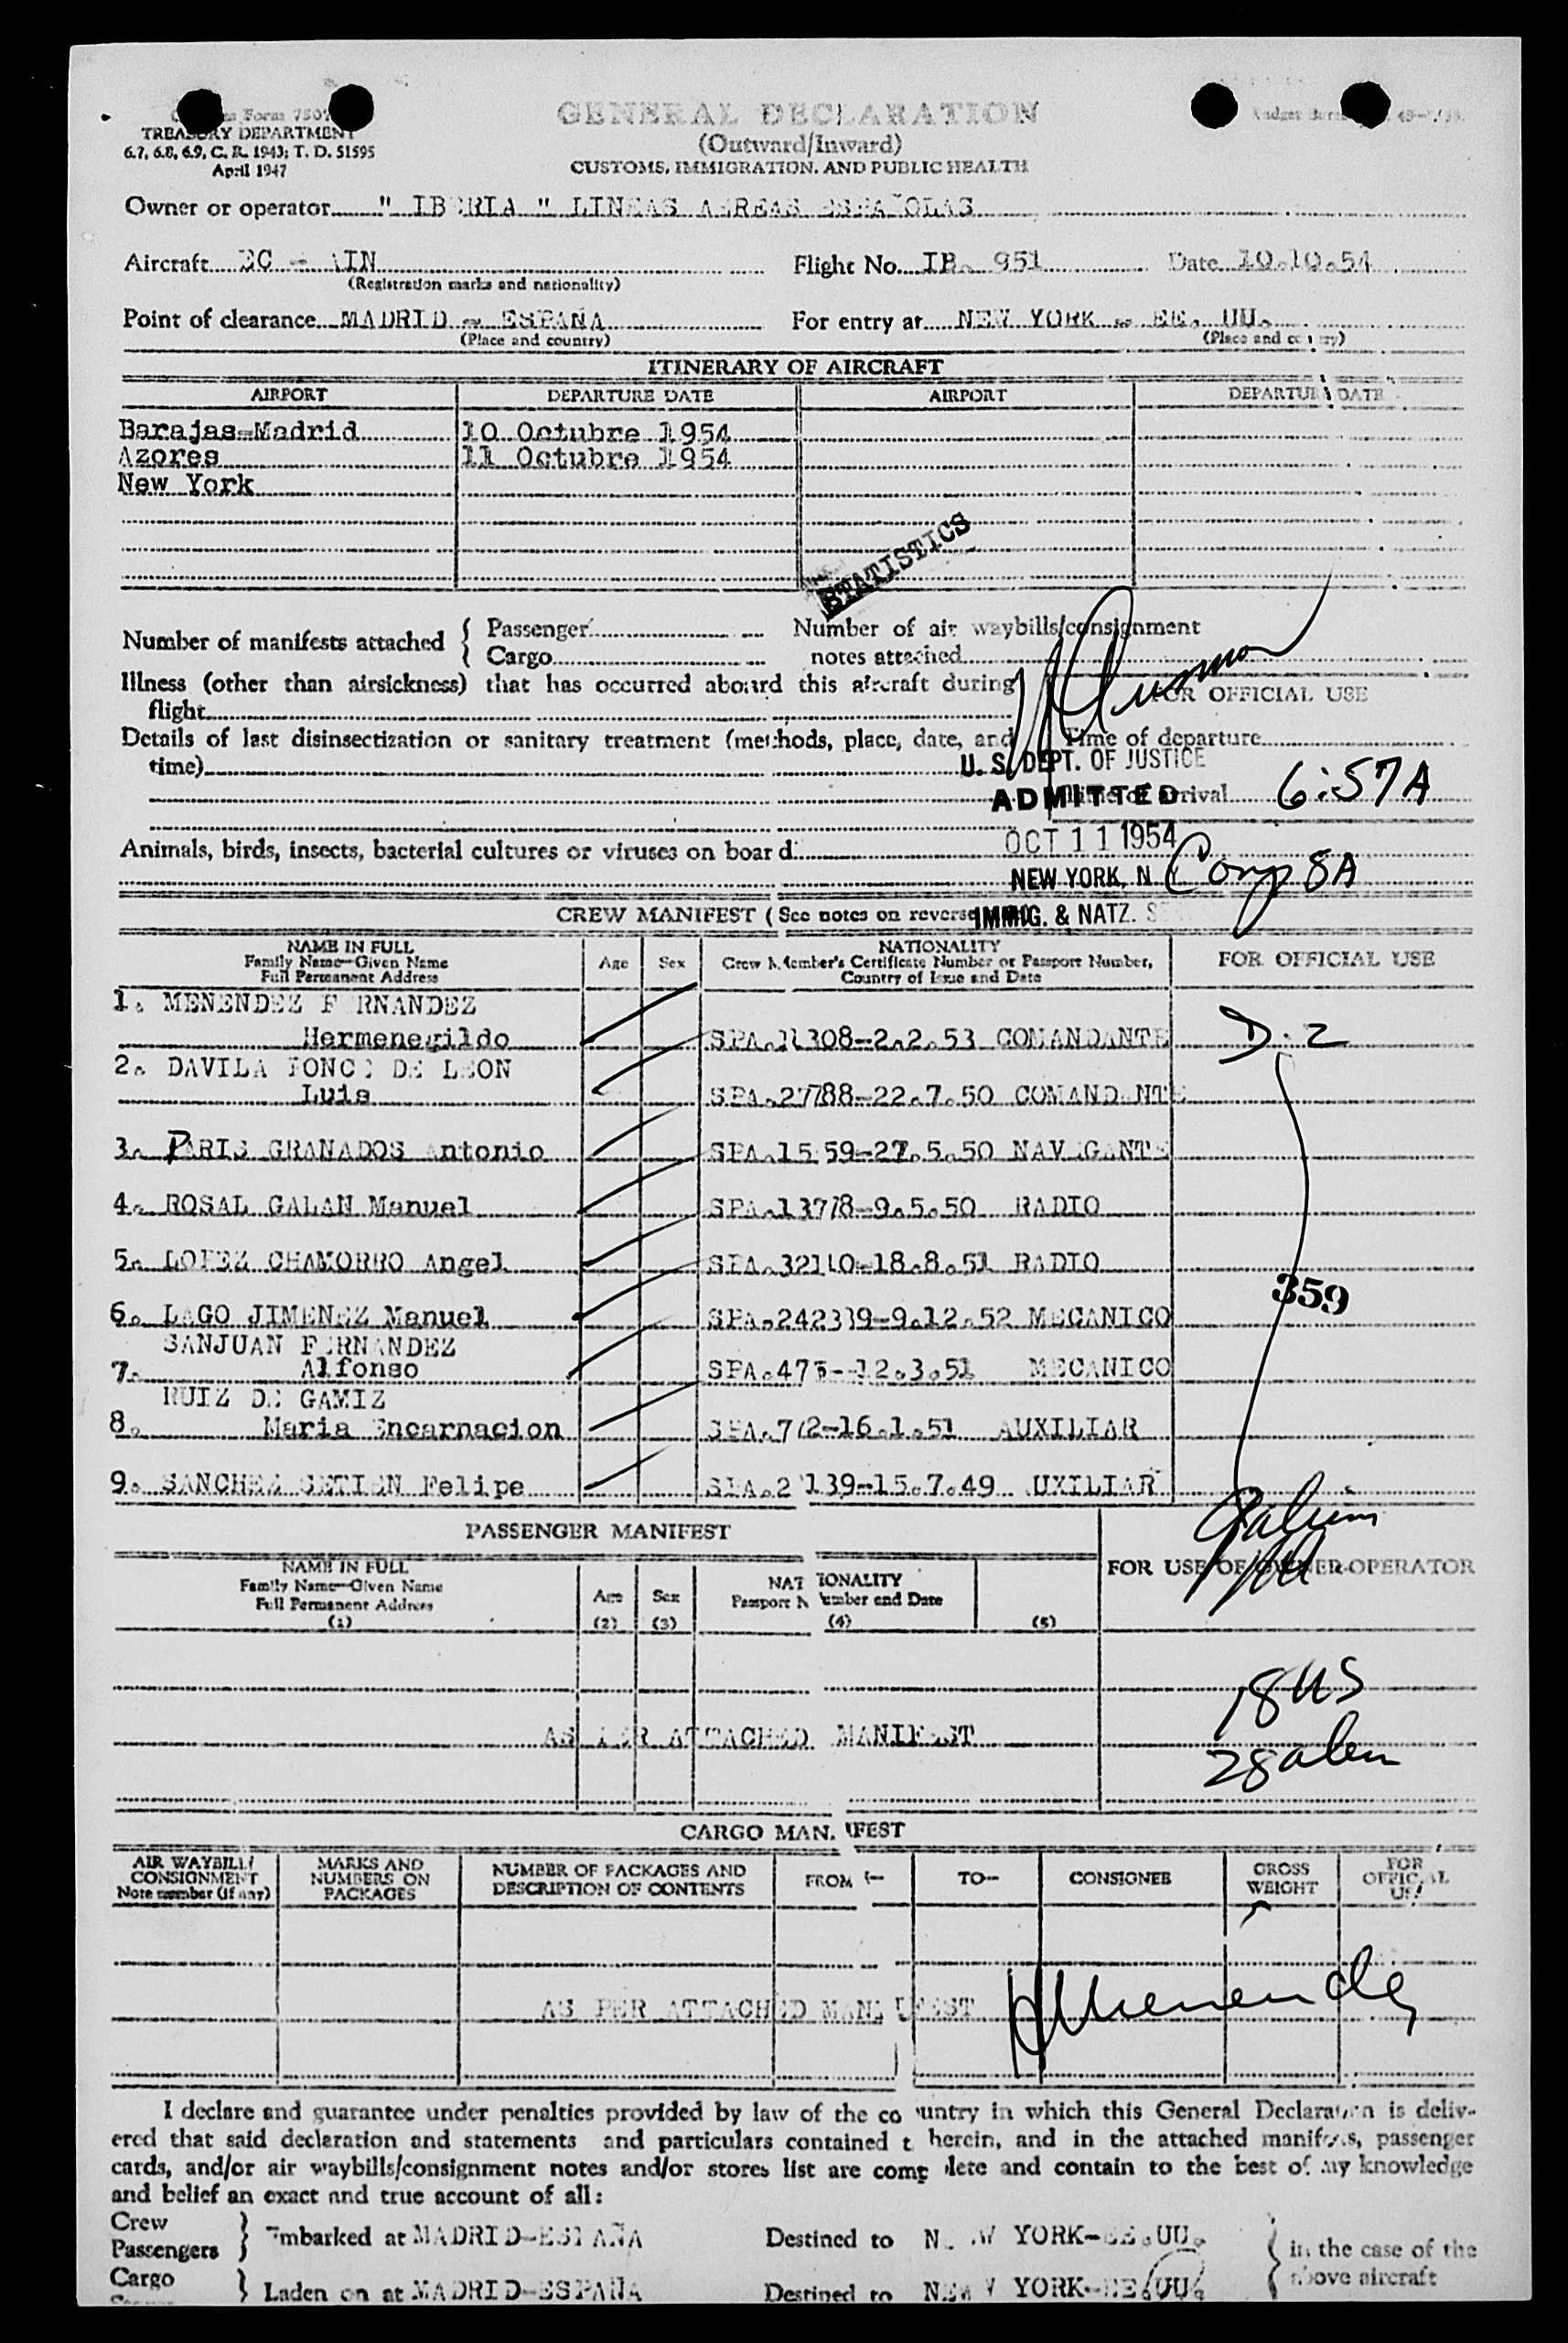 Form 7507
TREASURY DEPARTMENT
6.7, 6.8, 6.9, C. R. 1943; T. D. 51595
April 1947
GENERAL DECLARATION
(Outward/Inward)
CUSTOMS, IMMIGRATION, AND PUBLIC HEALTH
Owner or operator " IBERIA " LINEAS AEREAS ESPAÑOLAS
Aircraft EC - AIN Flight No. IB. 951 Date 10.10.54
(Registration marks and nationality)
Point of clearance MADRID - ESPAÑA For entry at NEW YORK - EE. UU.
(Place and country) (Place and country)
ITINERARY OF AIRCRAFT
AIRPORT DEPARTURE DATE AIRPORT DEPARTURE DATE
Barajas-Madrid 10 Octubre 1954
Azores 11 Octubre 1954
New York
STATISTICS
Number of manifests attached { Passenger Number of air waybills/consignment
Cargo notes attached
Illness (other than airsickness) that has occurred aboard this aircraft during
flight FOR OFFICIAL USE
Details of last disinsectization or sanitary treatment (methods, place, date, and Time of departure
time) U. S. DEPT. OF JUSTICE
ADMITTED Time of arrival 6:57A
OCT 11 1954
Animals, birds, insects, bacterial cultures or viruses on board:
NEW YORK, N. Y. Comp 8A
CREW MANIFEST (See notes on reverse
IMMIG. & NATZ.
NAME IN FULL Age Sex NATIONALITY FOR OFFICIAL USE
Family Name—Given Name Crew Member's Certificate Number or Passport Number,
Full Permanent Address Country of Issue and Date
1. MENENDEZ FERNANDEZ
Hermenegildo SPA.11308-2.2.53 COMANDANTE D-2
2. DAVILA PONCE DE LEON
Luis SPA.27788-22.7.50 COMANDANTE
3. PARIS GRANADOS Antonio SPA.15 59-27.5.50 NAVEGANTE
4. ROSAL GALAN Manuel SPA.13778-9.5.50 RADIO
5. LOPEZ CHAMORRO Angel SPA.32110-18.8.51 RADIO
359
6. LAGO JIMENEZ Manuel SPA.242339-9.12.52 MECANICO
SANJUAN FERNANDEZ
7. Alfonso SPA.475--12.3.51 MECANICO
RUIZ DE GAMIZ
8. Maria Encarnacion SPA.772-16.1.51 AUXILIAR
9. SANCHEZ SETIEN Felipe SPA.2 139-15.7.49 AUXILIAR
PASSENGER MANIFEST
NAME IN FULL NATIONALITY FOR USE OF OWNER-OPERATOR
Family Name—Given Name Age Sex Passport Number and Date
Full Permanent Address
(1) (2) (3) (4) (5)
18 US
AS PER ATTACHED MANIFEST
28 alien
CARGO MANIFEST
AIR WAYBILL/ MARKS AND NUMBER OF PACKAGES AND FROM— TO— CONSIGNEE GROSS FOR
CONSIGNMENT NUMBERS ON DESCRIPTION OF CONTENTS WEIGHT OFFICIAL
Note number (if any) PACKAGES USE
AS PER ATTACHED MANIFEST HMenendez
I declare and guarantee under penalties provided by law of the country in which this General Declaration is deliv-
ered that said declaration and statements and particulars contained therein, and in the attached manifests, passenger
cards, and/or air waybills/consignment notes and/or stores list are complete and contain to the best of my knowledge
and belief an exact and true account of all:
Crew } Embarked at MADRID-ESPAÑA Destined to NEW YORK-EE.UU. { in the case of the
Passengers
Cargo } Laden on at MADRID-ESPAÑA Destined to NEW YORK-EE.UU. above aircraft